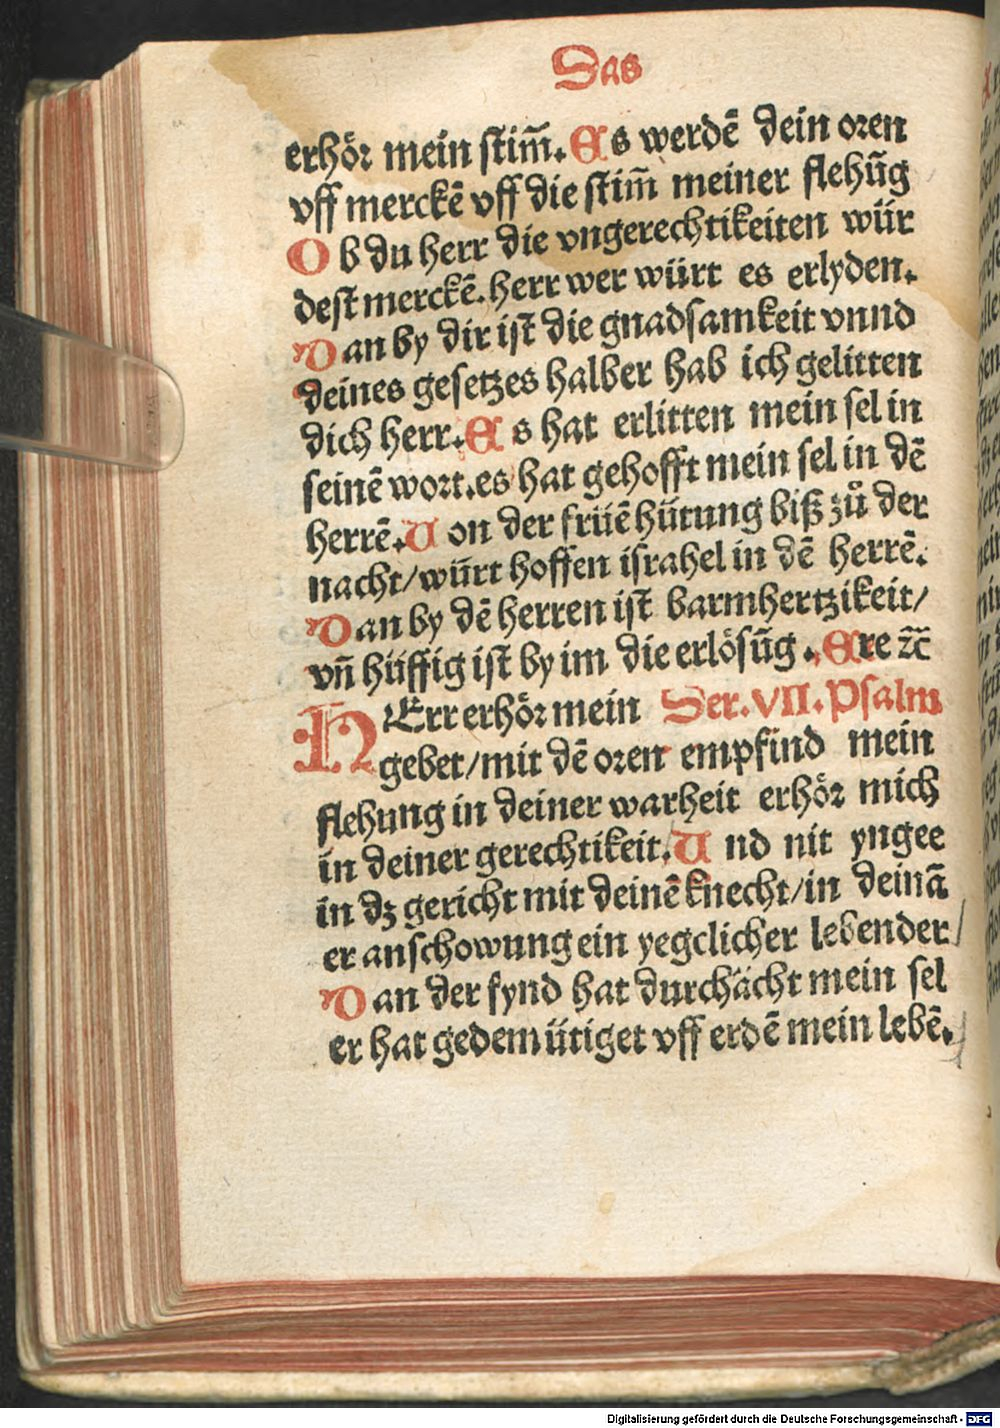 Das
erhör mein stim̄. Es werdē dein oren
vff merckē vff die stim̄ meiner flehūg
Ob du herr die vngerechtikeiten wür
dest merckē. herr wer würt es erlyden.
Dan by dir ist die gnadsamkeit vnnd
deines gesetzes halber hab ich gelitten
dich herr. Es hat erlitten mein sel in
seinē wort. es hat gehofft mein sel in dē
herrē. Von der früē hütung biß zů der
nacht/ würt hoffen israhel in dē herrē.
Dan by dē herren ist barmhertzikeit/
vn̄ hüffig ist by im die erlösūg. Ere ⁊c̄
HErr erhör mein Der. VII. Psalm
gebet/ mit dē oren empfind mein
flehung in deiner warheit erhör mich
in deiner gerechtikeit. Und nit yngee
in dz gericht mit deinē knecht/ in deinā
er anschowung ein yegclicher lebender/
Dan der fynd hat durchächt mein sel
er hat gedemütiget vff erdē mein lebē.
Digitalisierung gefördert durch die Deutsche Forschungsgemeinschaft - DFG